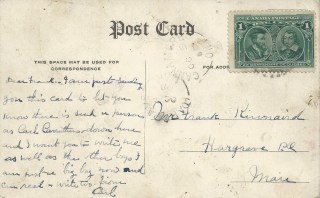 Post Card
THIS SPACE MAY BE USED FOR
CORRESPONDENCE
FOR ADDR
CANADA POSTAGE
1 1
Dear Frank - I am just sending
you this card to let you
know there is such a person
as Carl down here
and I want you to write me
as well as the other boys I
am not a big boy now and
can read - write
Carl
Mr Frank Kinnaird
Hargrave
Man